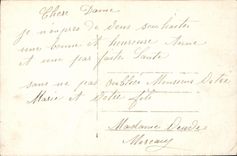 Chère Dame
je m'empresse de vous souhaiter
une bonne et heureuse Année
et une parfaite Santé
sans ne pas oublier Monsieur Votre
Marie et Votre fils
Madame